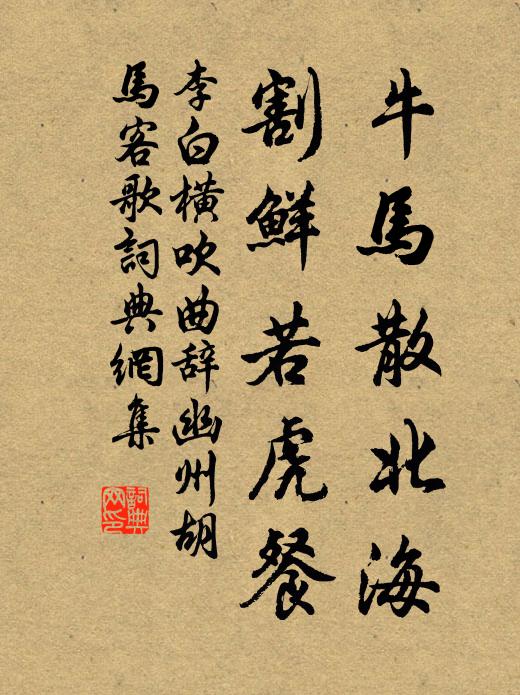 牛馬散北海
割鮮若虎餐
李白橫吹曲辞幽州胡
馬客歌詞典網集
詞典
网印